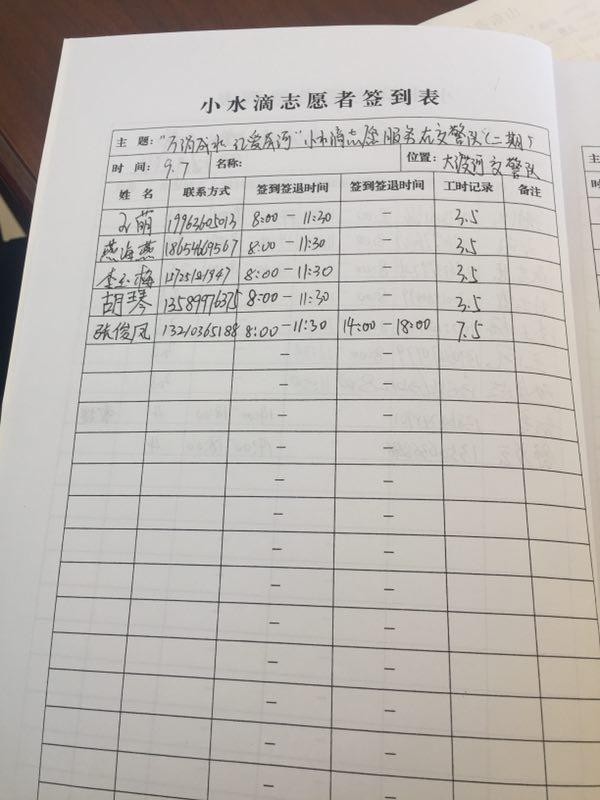 小水滴志愿者签到表
主 题: "万滴成水 汇爱成河"小水滴志愿服务在交警队(二期)
时 间: 9.7 名称: 位置: 大渡河交警队
姓 名 联系方式 签到签退时间 签到签退时间 工时记录 备注
王萌 19963605013 8:00-11:30 - 3.5
燕海燕 18654669567 8:00-11:30 - 3.5
李玉梅 8:00-11:30 - 3.5
胡琴 13589976375 8:00-11:30 - 3.5
张俊凤 13210365188 8:00-11:30 14:00-18:00 7.5
- -
- -
- -
- -
- -
- -
- -
- -
- -
- -
- -
- -
- -
- -